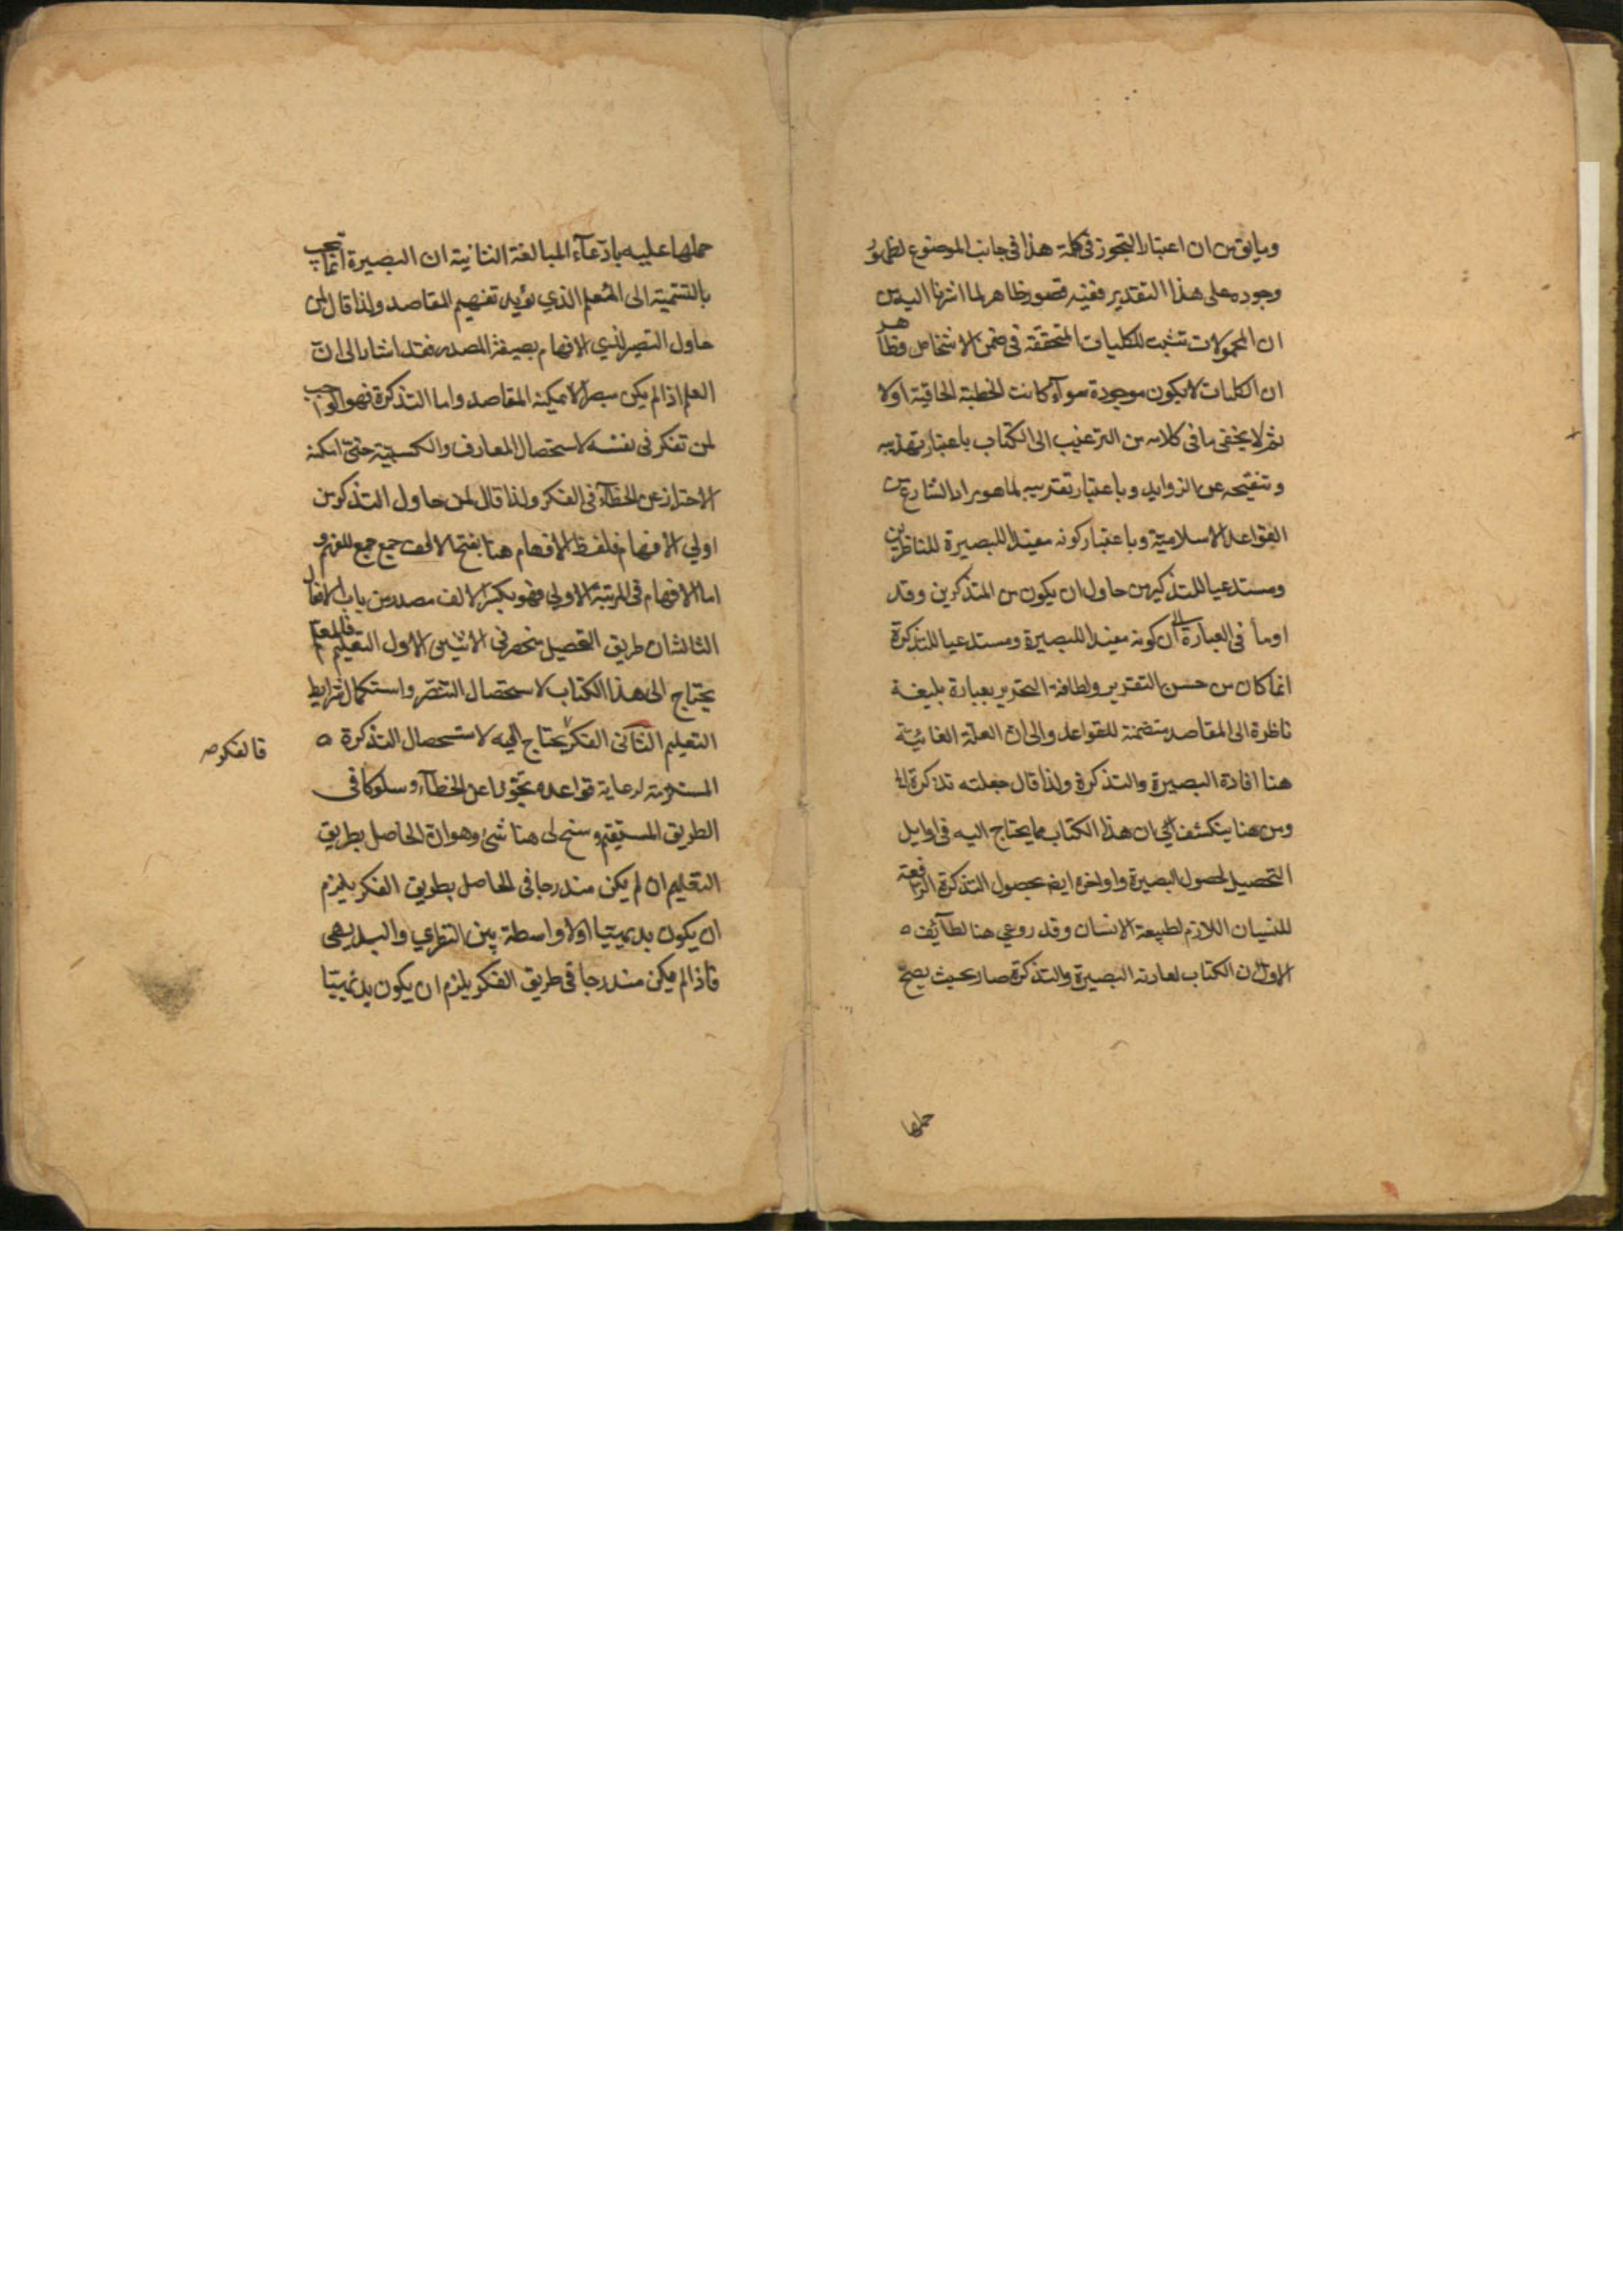 وما يق من ان اعتبار التجوز في كلمة هذا في جانب الموضوع لظهور
وجوده على هذا التقدير ففيه قصور ظاهر لما اشرنا اليه من
ان المحمولات تثبت للكليات المتحققة في ضمن الاشخاص وظاهر
ان الكليات لا يكون موجودة سوآء كانت الخطبة الحاقية اولا
ثم لا يخفى ما في كلامه من الترغيب الى الكتاب باعتبار تهذيبه
وتنقيحه عن الزوايد وباعتبار تقريبه لما هو مراد الشارع من
القواعد الاسلامية وباعتبار كونه مفيدا للبصيرة للناظرين
ومستدعيا للتذكير من حاول ان يكون من المتذكرين وقد
اومأ في العبارة الى ان كونه مفيدا للبصيرة ومستدعيا للتذكرة
انما كان من حسن التقرير ولطافة التحرير بعبارة بليغة
ناظرة الى المقاصد متضمنة للقواعد والى ان العلة الغائية
هنا افادة البصيرة والتذكرة ولذا قال جعلته تذكرة الخ
ومن هنا ينكشف الى ان هذا الكتاب مما يحتاج اليه في اوايل
التحصيل لحصول البصيرة واواخره ايضا بحصول التذكرة الرافعة
للنسيان اللازم لطبيعة الانسان وقد روعي هنا لطآئف ه
الاول ان الكتاب لعادته البصيرة والتذكرة صار بحيث يصح
حملها
حملها عليه بادعآء المبالغة الثانية ان البصيرة انما يجب
بالنسبة الى المتعلم الذي يؤيد تفهيم المقاصد ولذا قال لمن
حاول التبصر لذي الافهام بصيغة المصدر فقد اشار الى ان
العلم اذا لم يكن مبصرا لا يمكنه المقاصد واما التذكرة فهو الواجب
لمن تفكر في نفسه لاستحصال المعارف والكسبية حتى امكنه
الاحتراز عن الخطآء في الفكر ولذا قال لمن حاول التذكر من
اولي الافهام فلفظ الافهام هنا بفتح الالف جمع جمع للفهم و
اما الافهام في المرتبة الاولى فهو بكسر الالف مصدر من باب الافعال
الثالث ان طريق التحصيل منحصر في الاثنين الاول التعليم فالمعلم
يحتاج الى هذا الكتاب لاستحصال التبصر واستكمال شرايط
التعليم الثاني الفكر يحتاج اليه لاستحصال التذكرة ه
فالفكر صه
المستلزمة لرعاية قواعده تحرزا عن الخطآء وسلوكا في
الطريق المستقيم وسنح لى هنا شئ وهو ان الحاصل بطريق
التعليم ان لم يكن مندرجا في الحاصل بطريق الفكر يلزم
ان يكون بديهيا اولا واسطة بين النظري والبديهي
فاذا لم يكن مندرجا في طريق الفكر يلزم ان يكون بديهيا